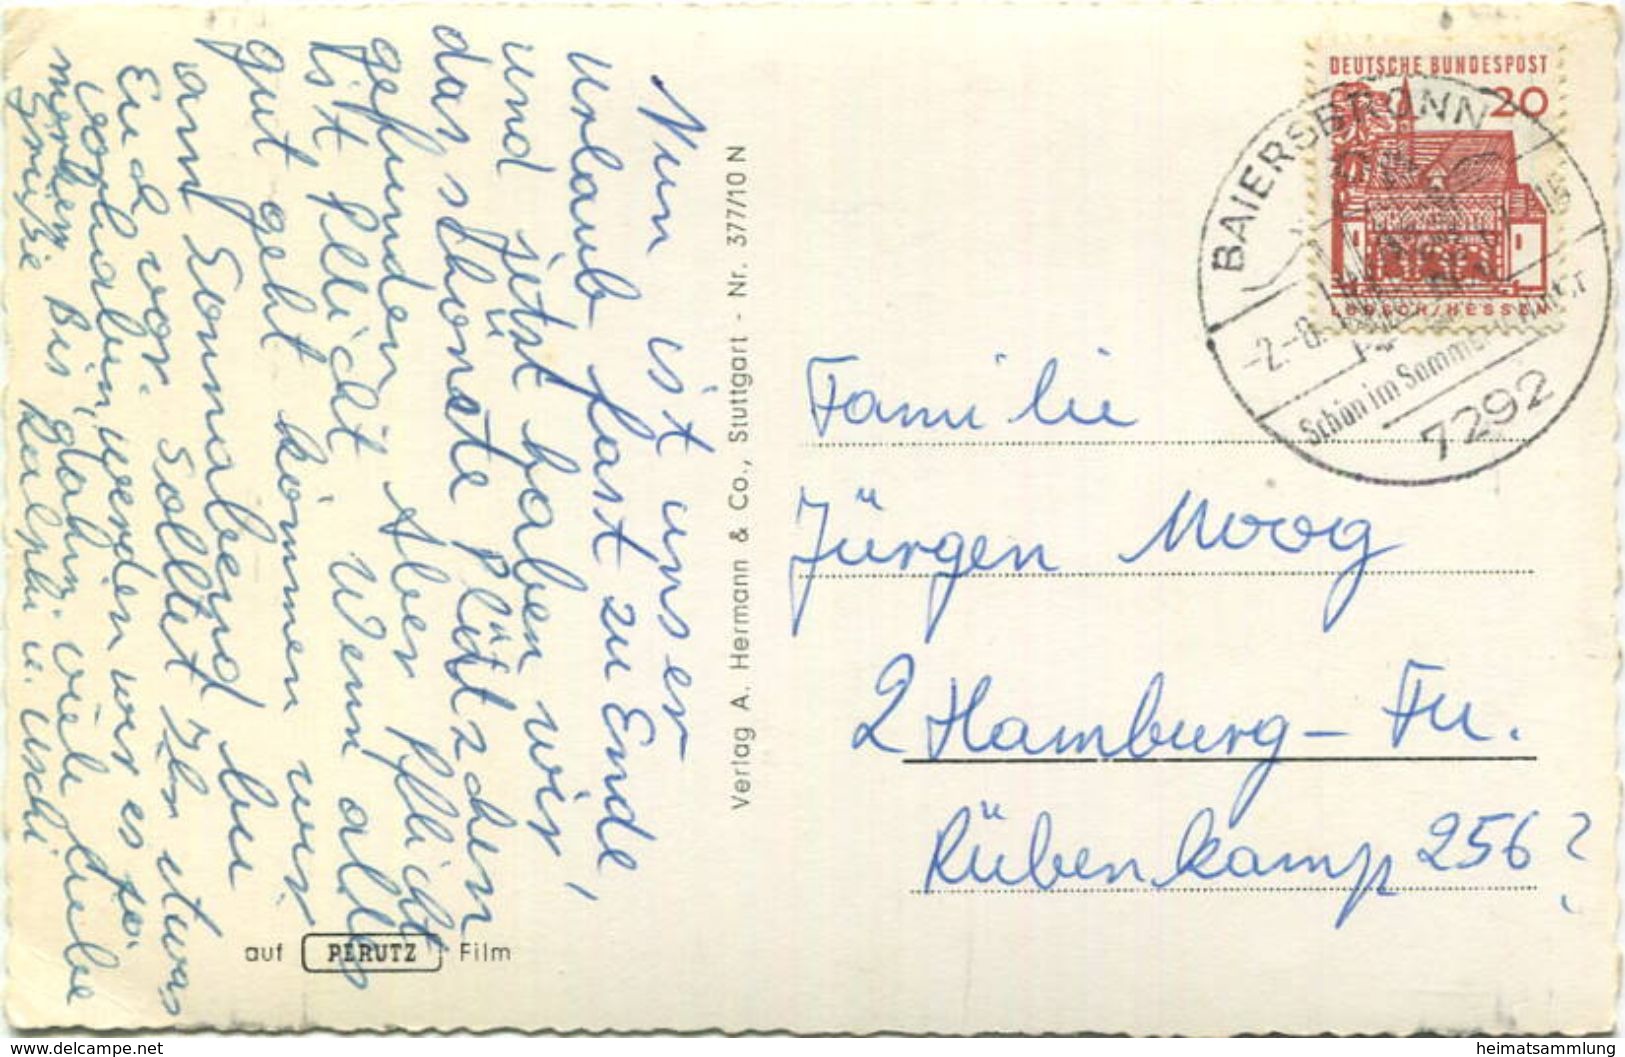 Nun ist unser
Urlaub fast zu Ende,
und jetzt haben wir
das schönste Plätzchen
gefunden. Aber Pflicht
ist Pflicht. Wenn alles
gut geht kommen wir
am Sonnabend bei
Euch vor. Solltet Ihr etwas
vorhaben, werden wir es ja
merken. Bis dahin viele liebe
Grüße Ralph u. Uschi
Verlag A. Hermann & Co., Stuttgart - Nr. 377/10 N
auf PERUTZ Film
DEUTSCHE BUNDESPOST
20
LORSCH/HESSEN
BAIERSBRONN
-2.-8.
Schön im Sommer
7292
Familie
Jürgen Moog
2 Hamburg - Fu.
Rübenkamp 256?
www.delcampe.net
heimatsammlung